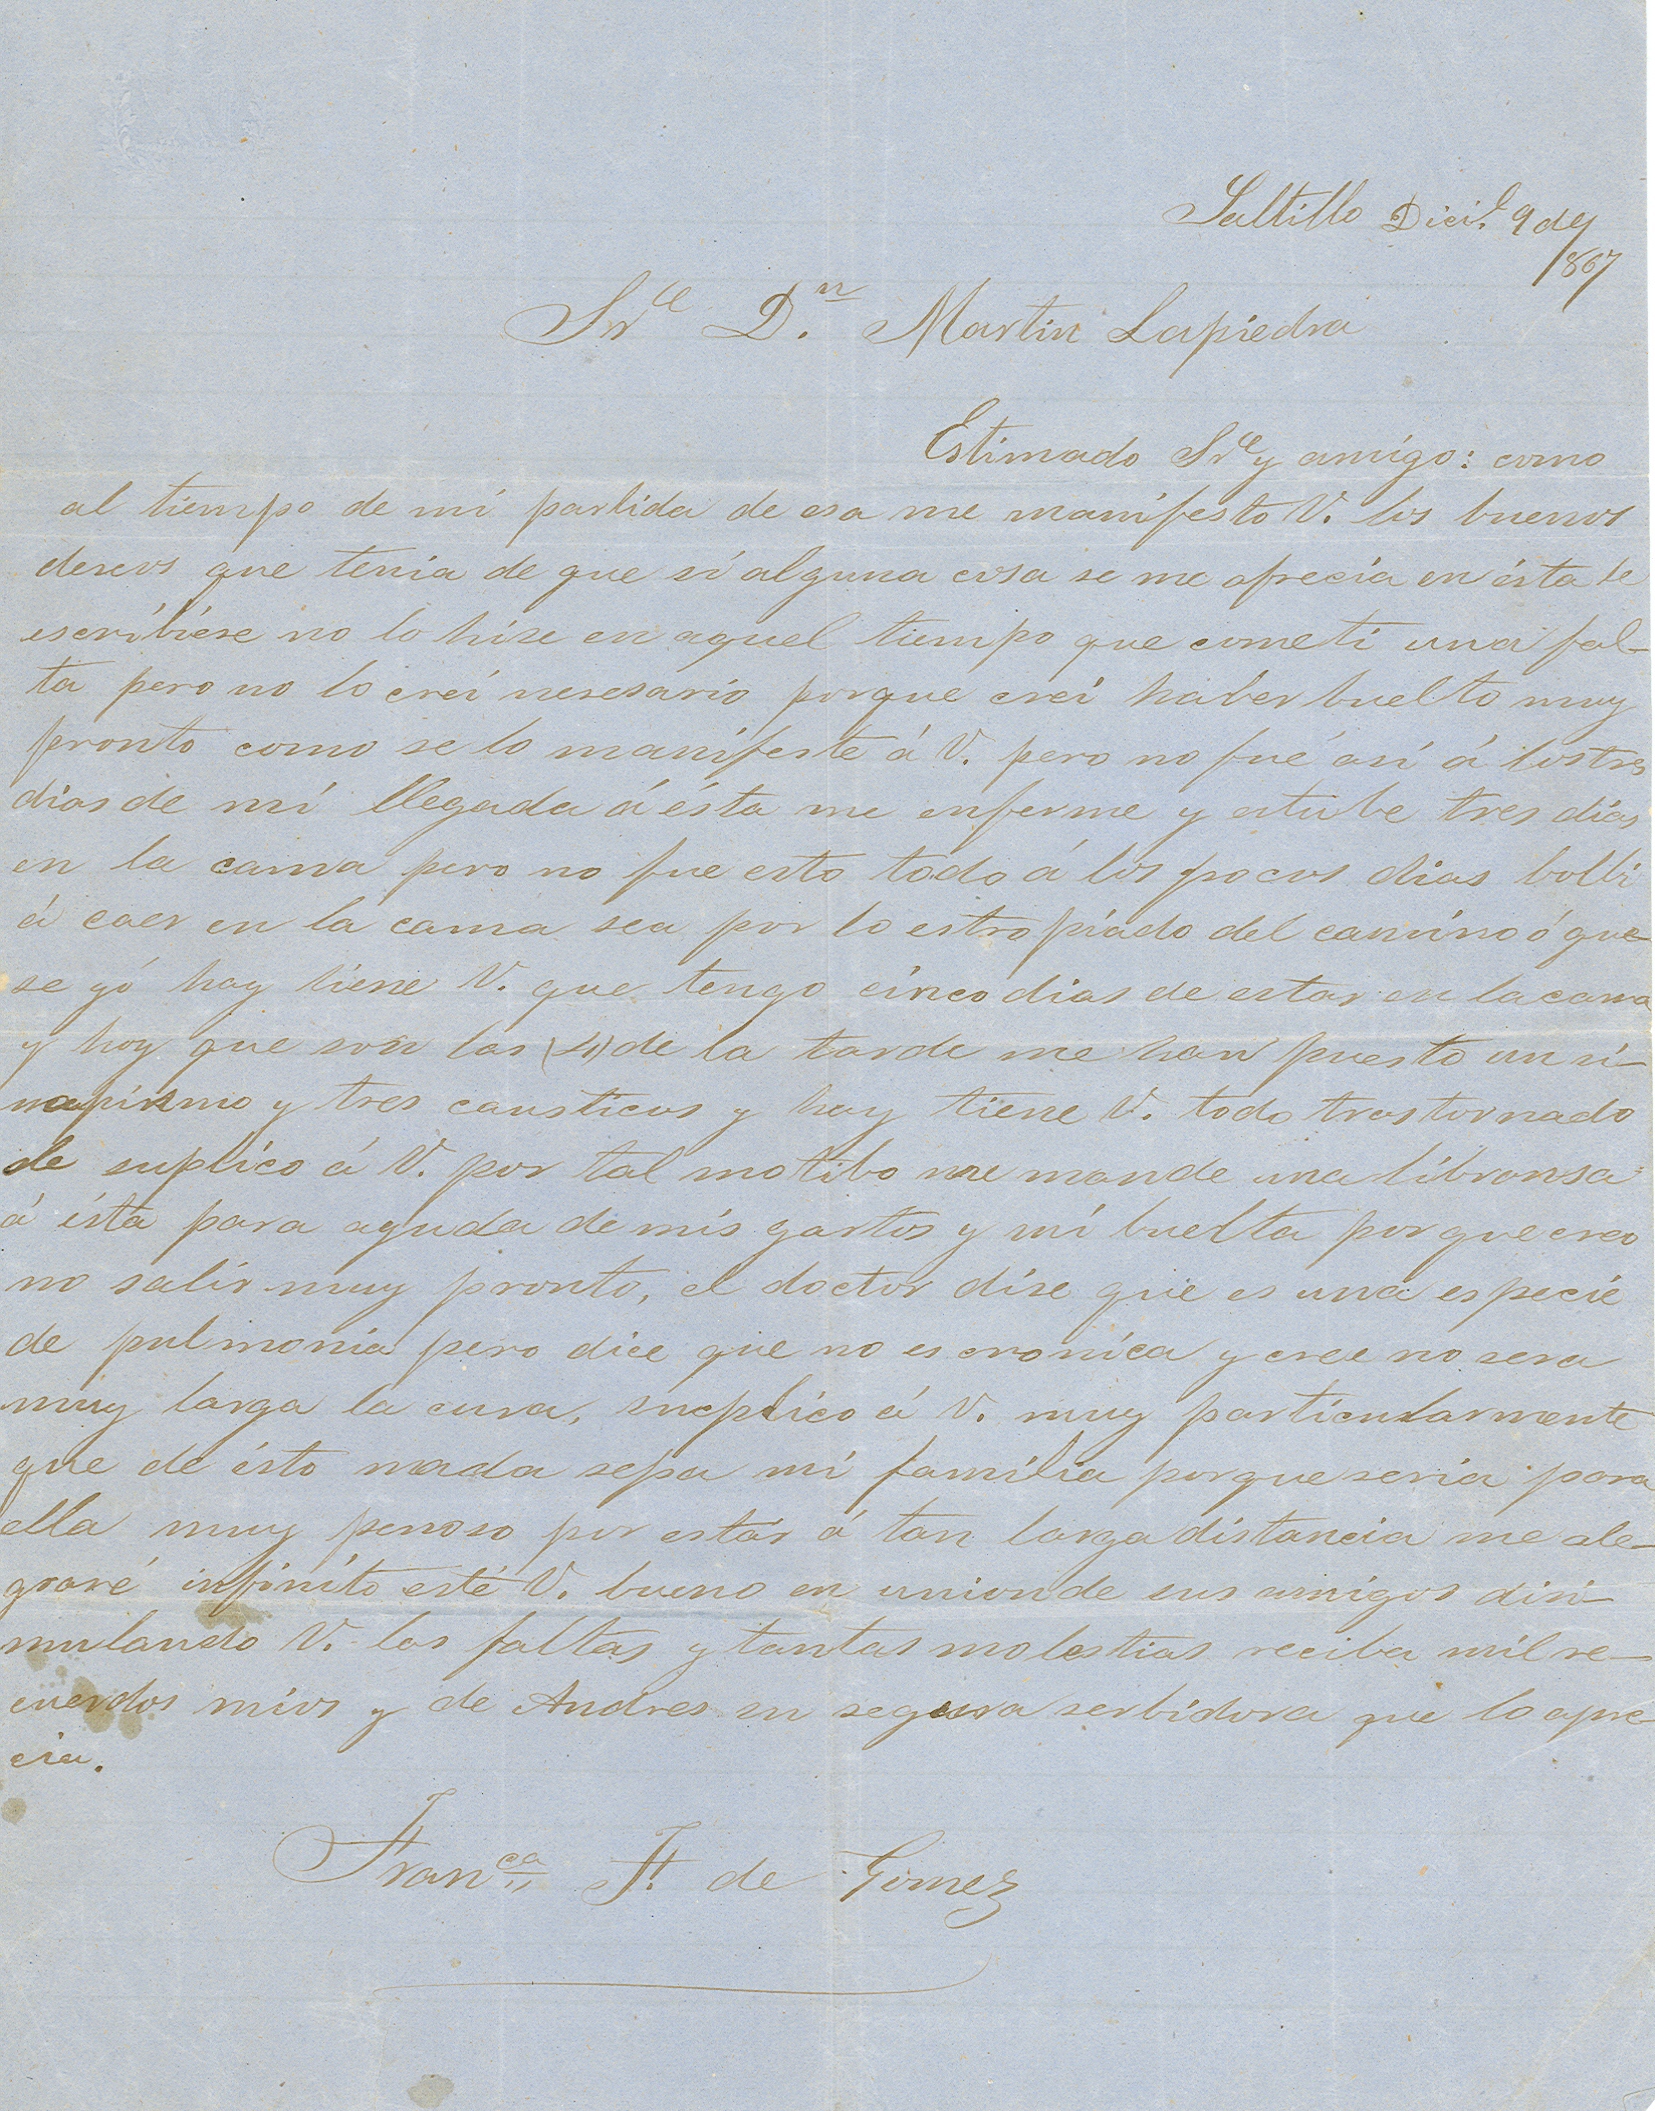 Saltillo Dici.e 9 de
1867
Sr. D.n Martin Lapiedra
Estimado Sr. y amigo: como
al tiempo de mi partida de esa me manifesto V. los buenos
deseos que tenia de que si alguna cosa se me ofrecia en ésta le
escribiese no lo hise en aquel tiempo que cometi una fal-
ta pero no lo creí nesesario porque creí haber buelto muy
pronto como se lo manifeste á V. pero no fué así á los tres
dias de mi llegada á ésta me enferme y estube tres días
en la cama pero no fue esto todo á los pocos dias bolbi
á caer en la cama sea por lo estropiado del camino ó que
se yó hay tiene V. que tengo cinco dias de estar en la cama
y hoy que son las (4) de la tarde me han puesto un si-
napismo y tres causticos y hay tiene V. todo trastornado
le suplico á V. por tal motibo me mande una libransa
á ésta para aguda de mis gastos y mi buelta porque creo
no salir muy pronto, el doctor dise que es una especie
de pulmonia pero dice que no es cronica y cree no sera
muy larga la cura, sucplico á V. muy particularmente
que de ésto nada sepa mi familia porque seria para
ella muy penoso por estár á tan larga distancia me ale-
graré infinito esté V. bueno en union de sus amigos disi-
mulando V. las faltas y tantas molestias reciba mil re-
cuerdos mios y de Andres su segura serbidora que lo apre-
cia.
Fran.ca F. de Gomez